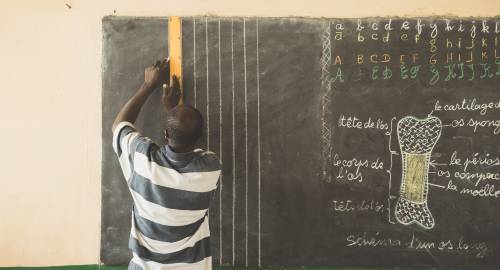 a b c d e f g h i j k l
a b c d e f g h i j k l
A B C D E F G H I J K L
A B C D E F G H I J K
le cartilage d
os spong
tête de l'os
le corps de
l'os
le périos
os compac
la moelle
tête de l'os
schéma d'un os long